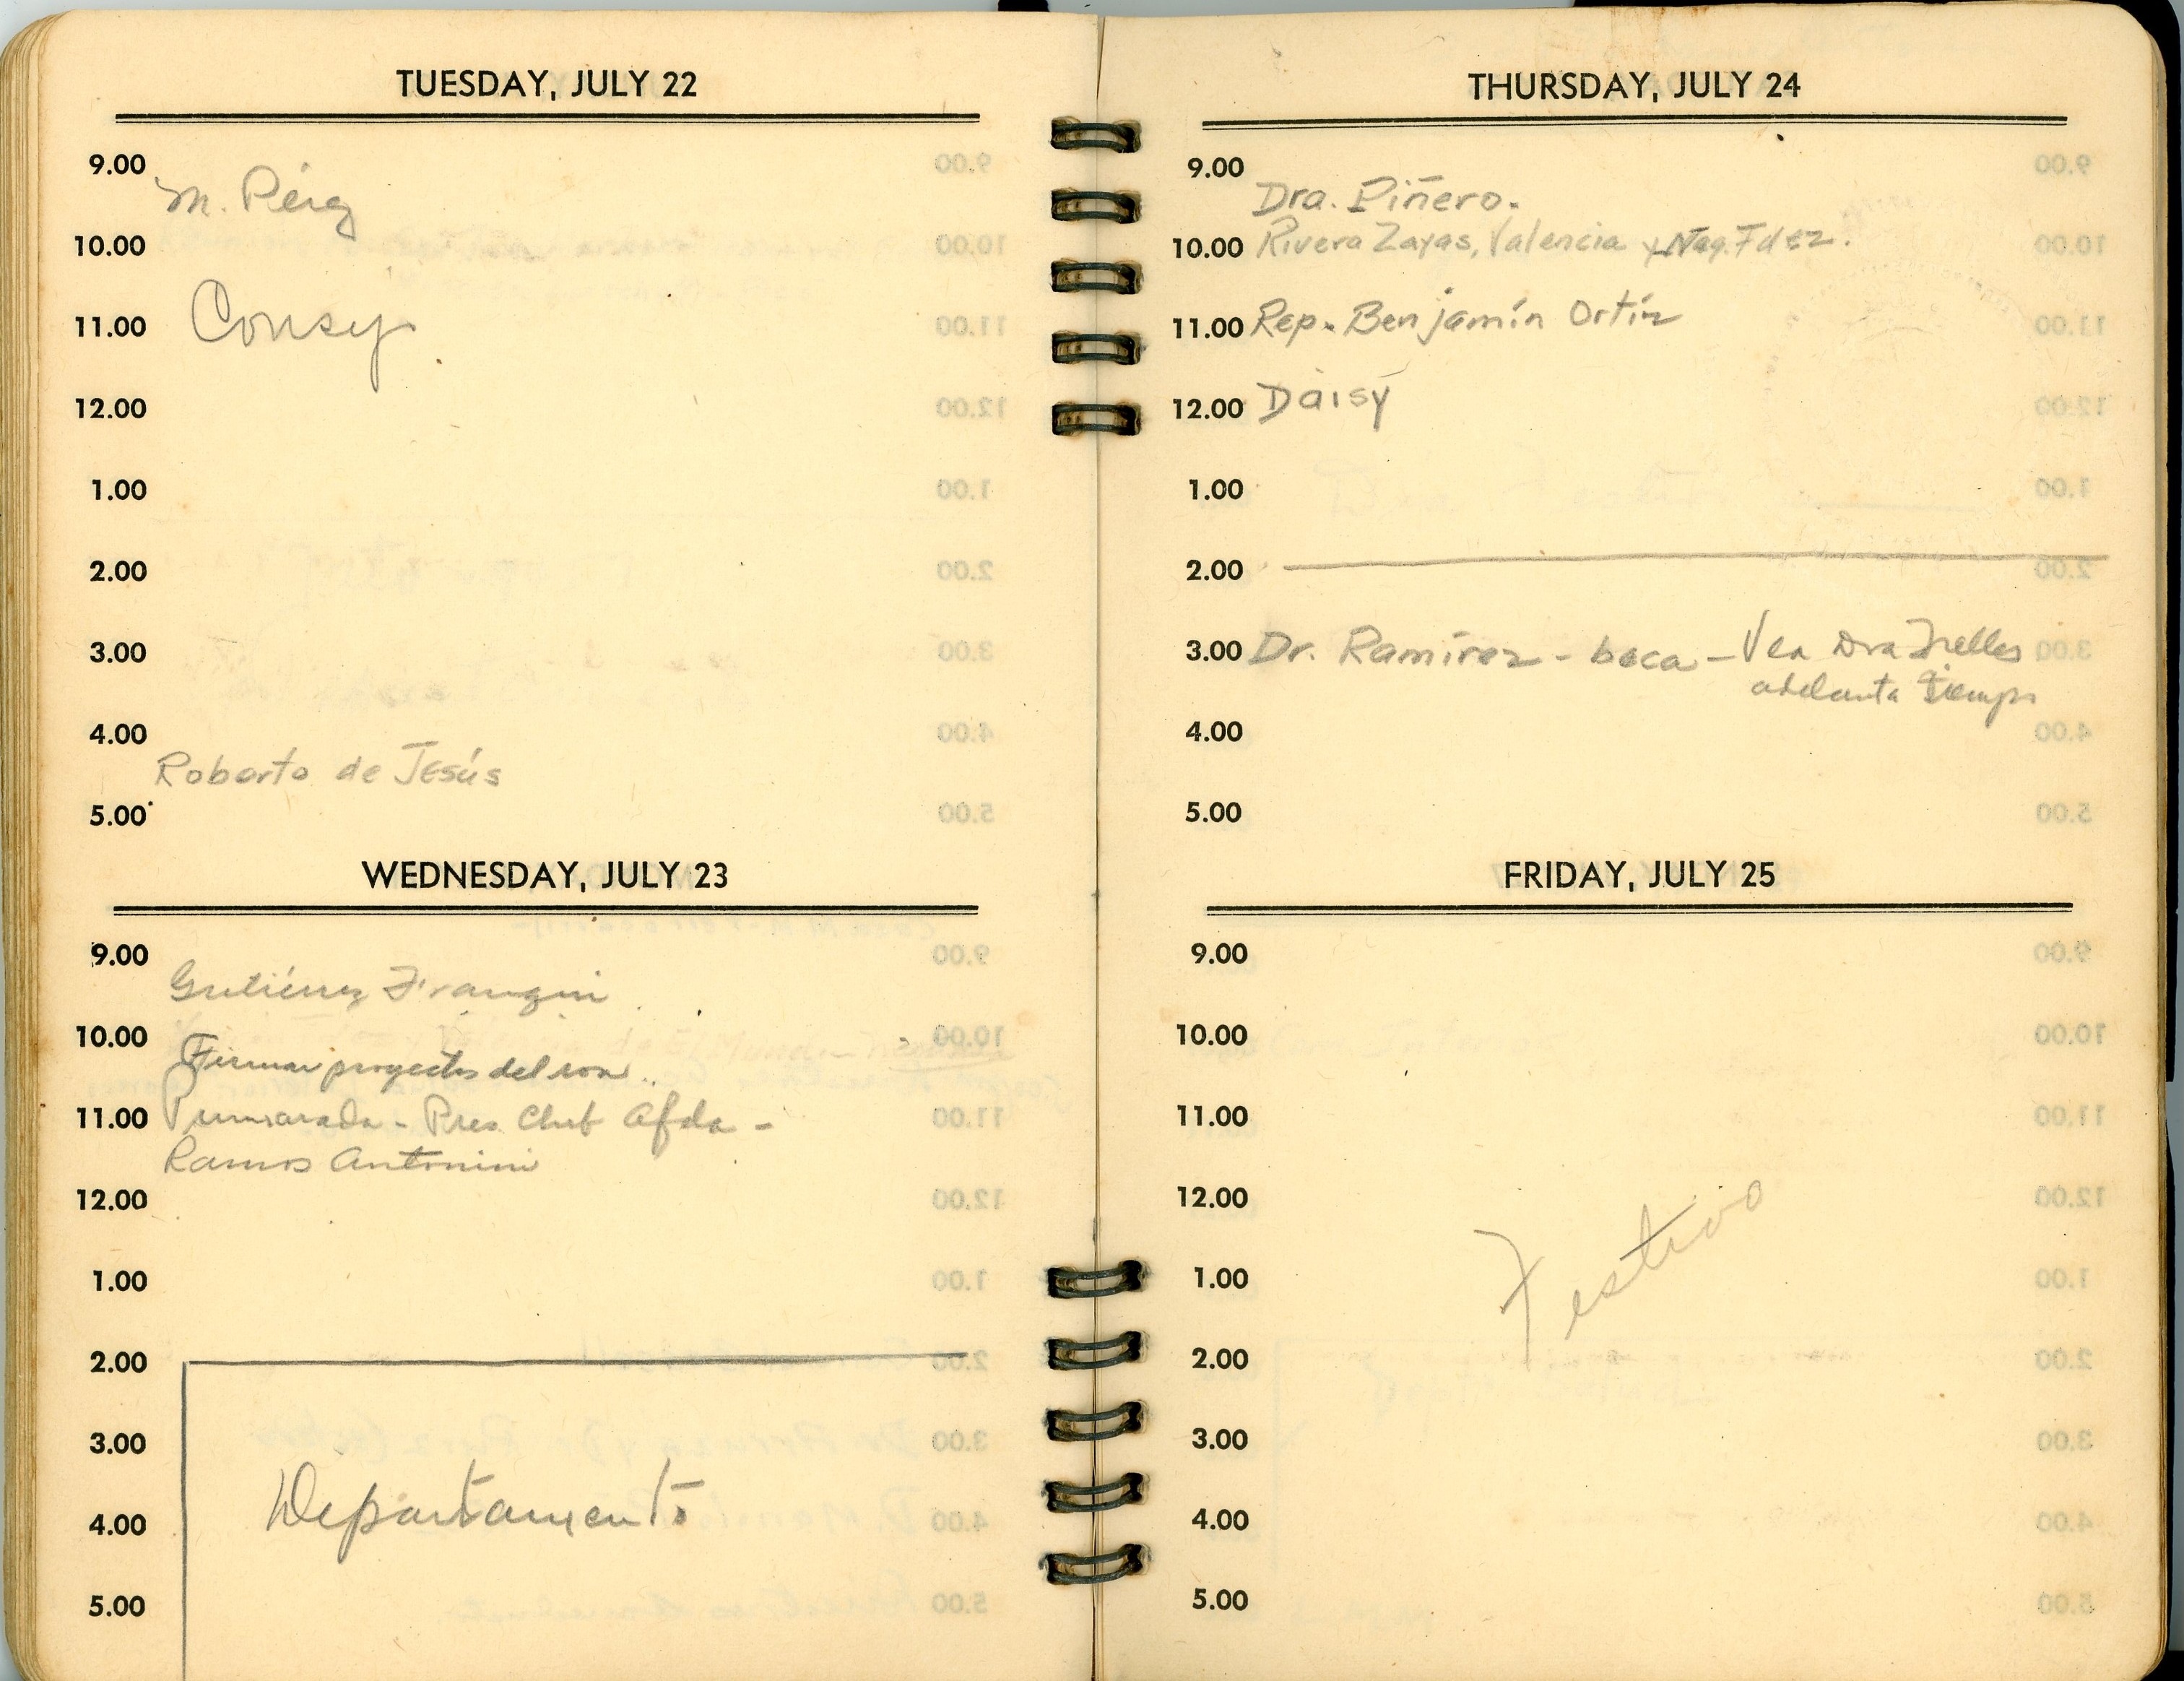 TUESDAY, JULY 22
9.00
M. Pérez
10.00
11.00 Consy
12.00
1.00
2.00
3.00
4.00
Roberto de Jesús
5.00
WEDNESDAY, JULY 23
9.00
Gutiérrez Franqui
10.00
Firmar proyectos del ron
11.00 Pumarada - Pres Club Afda -
Ramos Antonini
12.00
1.00
2.00
3.00
Departamento
4.00
5.00
THURSDAY, JULY 24
9.00
Dra. Piñero.
10.00 Rivera Zayas, Valencia y Nag. Fdez.
11.00 Rep. Benjamín Ortíz
12.00 Daisy
1.00
2.00
3.00 Dr. Ramírez - beca - Ver Dra Trelles
adelanta tiempo
4.00
5.00
FRIDAY, JULY 25
9.00
10.00
11.00
12.00
Festivo
1.00
2.00
3.00
4.00
5.00